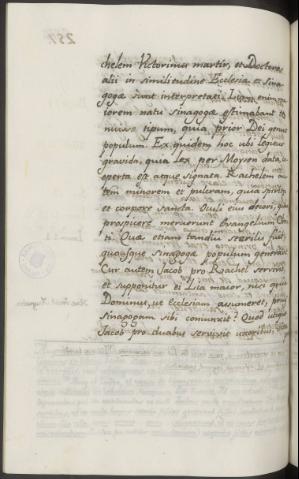 chelem Victorinus martir, et Doctores
alii in similitudine Ecclesiæ et Sina
gogæ sunt interpretati. Liam enim ma
iorem natu sinagogæ estimabant te
nuisse tipum, quia prior Dei genuit
populum. Ex quidem hoc ubi
gravida, quia Lex per Moysen data, co
operta est atque signata. Rachelem au
tem minorem et pulcram, quia spiritu
et corpore sancta. Oculi eius decori, quia
prospicere meruerunt Evangelium Chris
ti. Quæ etiam tandiu sterilis fuit,
quousque Sinagoga populum generavit.
Cur autem Jacob pro Rachel servivit,
et supponitur ei Lia maior, nisi quia
Dominus, ut Ecclesiam assumeret, prius
Sinagogam sibi coniunxit? Quod utique
Jacob pro duabus servivit uxoribus,